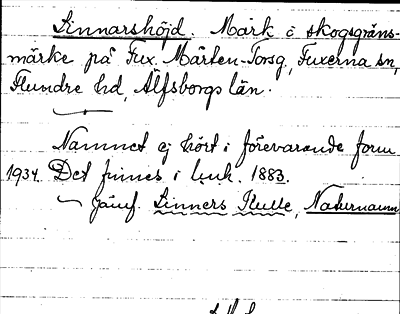 Linnarshöjd. Mark o skogsgräns-
märke på Fux. Mårten-Torsg, Fuxerna sn,
Flundre hd, Älfsborgs län.
Namnet ej hört i förevarande form
1934. Det finnes i luk. 1883.
Jämf. Linners Kulle, Naturnamn